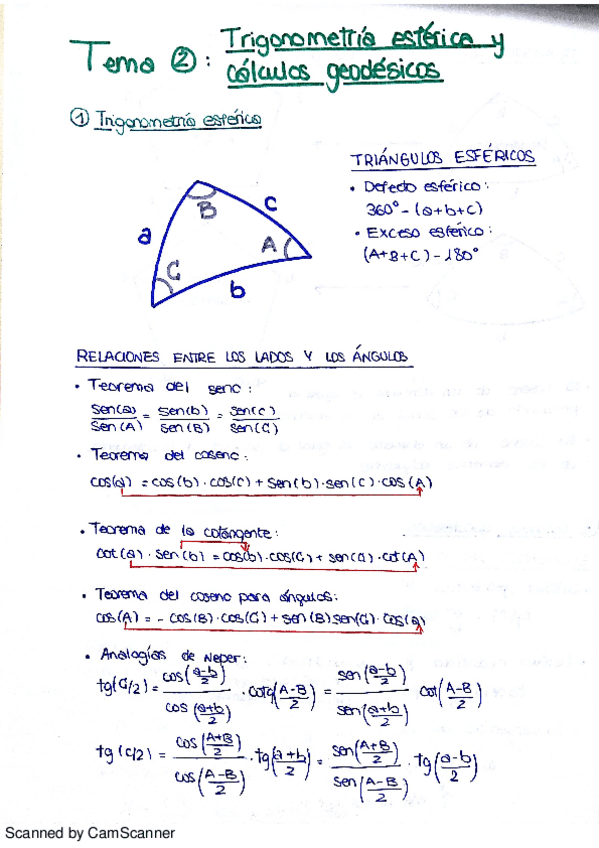 Tema ②: Trigonometría esférica y
cálculos geodésicos
① Trigonometría esférica
TRIÁNGULOS ESFÉRICOS
• Defecto esférico:
360° - (a+b+c)
• Exceso esférico:
(A+B+C) - 180°
B
c
a
A
C
b
RELACIONES ENTRE LOS LADOS Y LOS ÁNGULOS
• Teorema del seno:
sen(a)/sen(A) = sen(b)/sen(B) = sen(c)/sen(C)
• Teorema del coseno:
cos(a) = cos(b)·cos(c) + sen(b)·sen(c)·cos(A)
• Teorema de la cotangente:
cot(a)·sen(b) = cos(b)·cos(C) + sen(C)·cot(A)
• Teorema del coseno para ángulos:
cos(A) = - cos(B)·cos(C) + sen(B)sen(C)·cos(a)
• Analogías de Neper:
tg(C/2) = cos((a-b)/2)/cos((a+b)/2) · cotg((A-B)/2) = sen((a-b)/2)/sen((a+b)/2) cot((A-B)/2)
tg(c/2) = cos((A+B)/2)/cos((A-B)/2) · tg((a+b)/2) = sen((A+B)/2)/sen((A-B)/2) · tg((a-b)/2)
Scanned by CamScanner